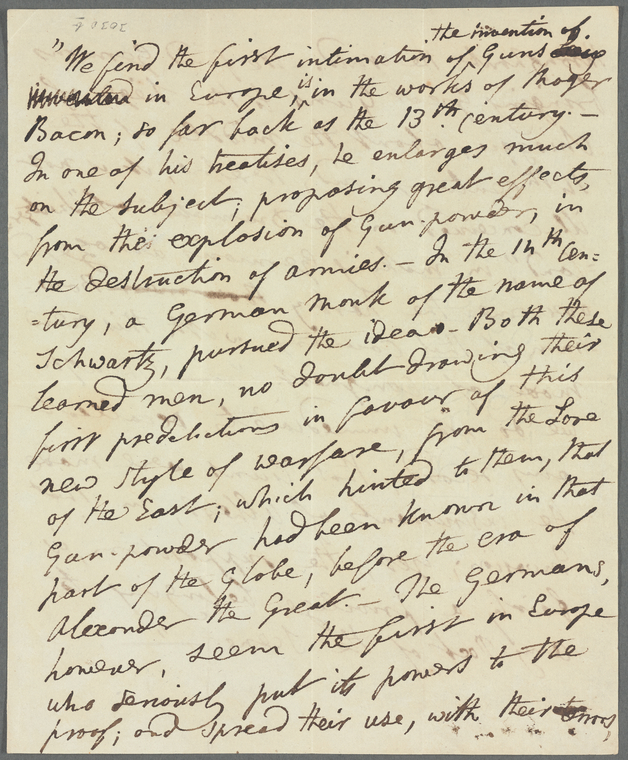 the invention of
"We find the first intimation of Guns
in Europe, is in the works of Roger
Bacon; so far back as the 13th. Century. —
In one of his treatises, he enlarges much
on the subject; proposing great effects,
from the explosion of Gun-powder, in
the destruction of armies. — In the 14th Cen=
=tury, a German Monk of the name of
Schwartz, pursued the idea. — Both these
learned men, no doubt drawing their
first predilections in favour of this
new style of warfare, from the Lore
of the East; which hinted to them, that
Gun-powder had been known in that
part of the Globe, before the era of
Alexander the Great. — The Germans,
however, seem the first in Europe
who seriously put its powers to the
proof; and spread their use, with their